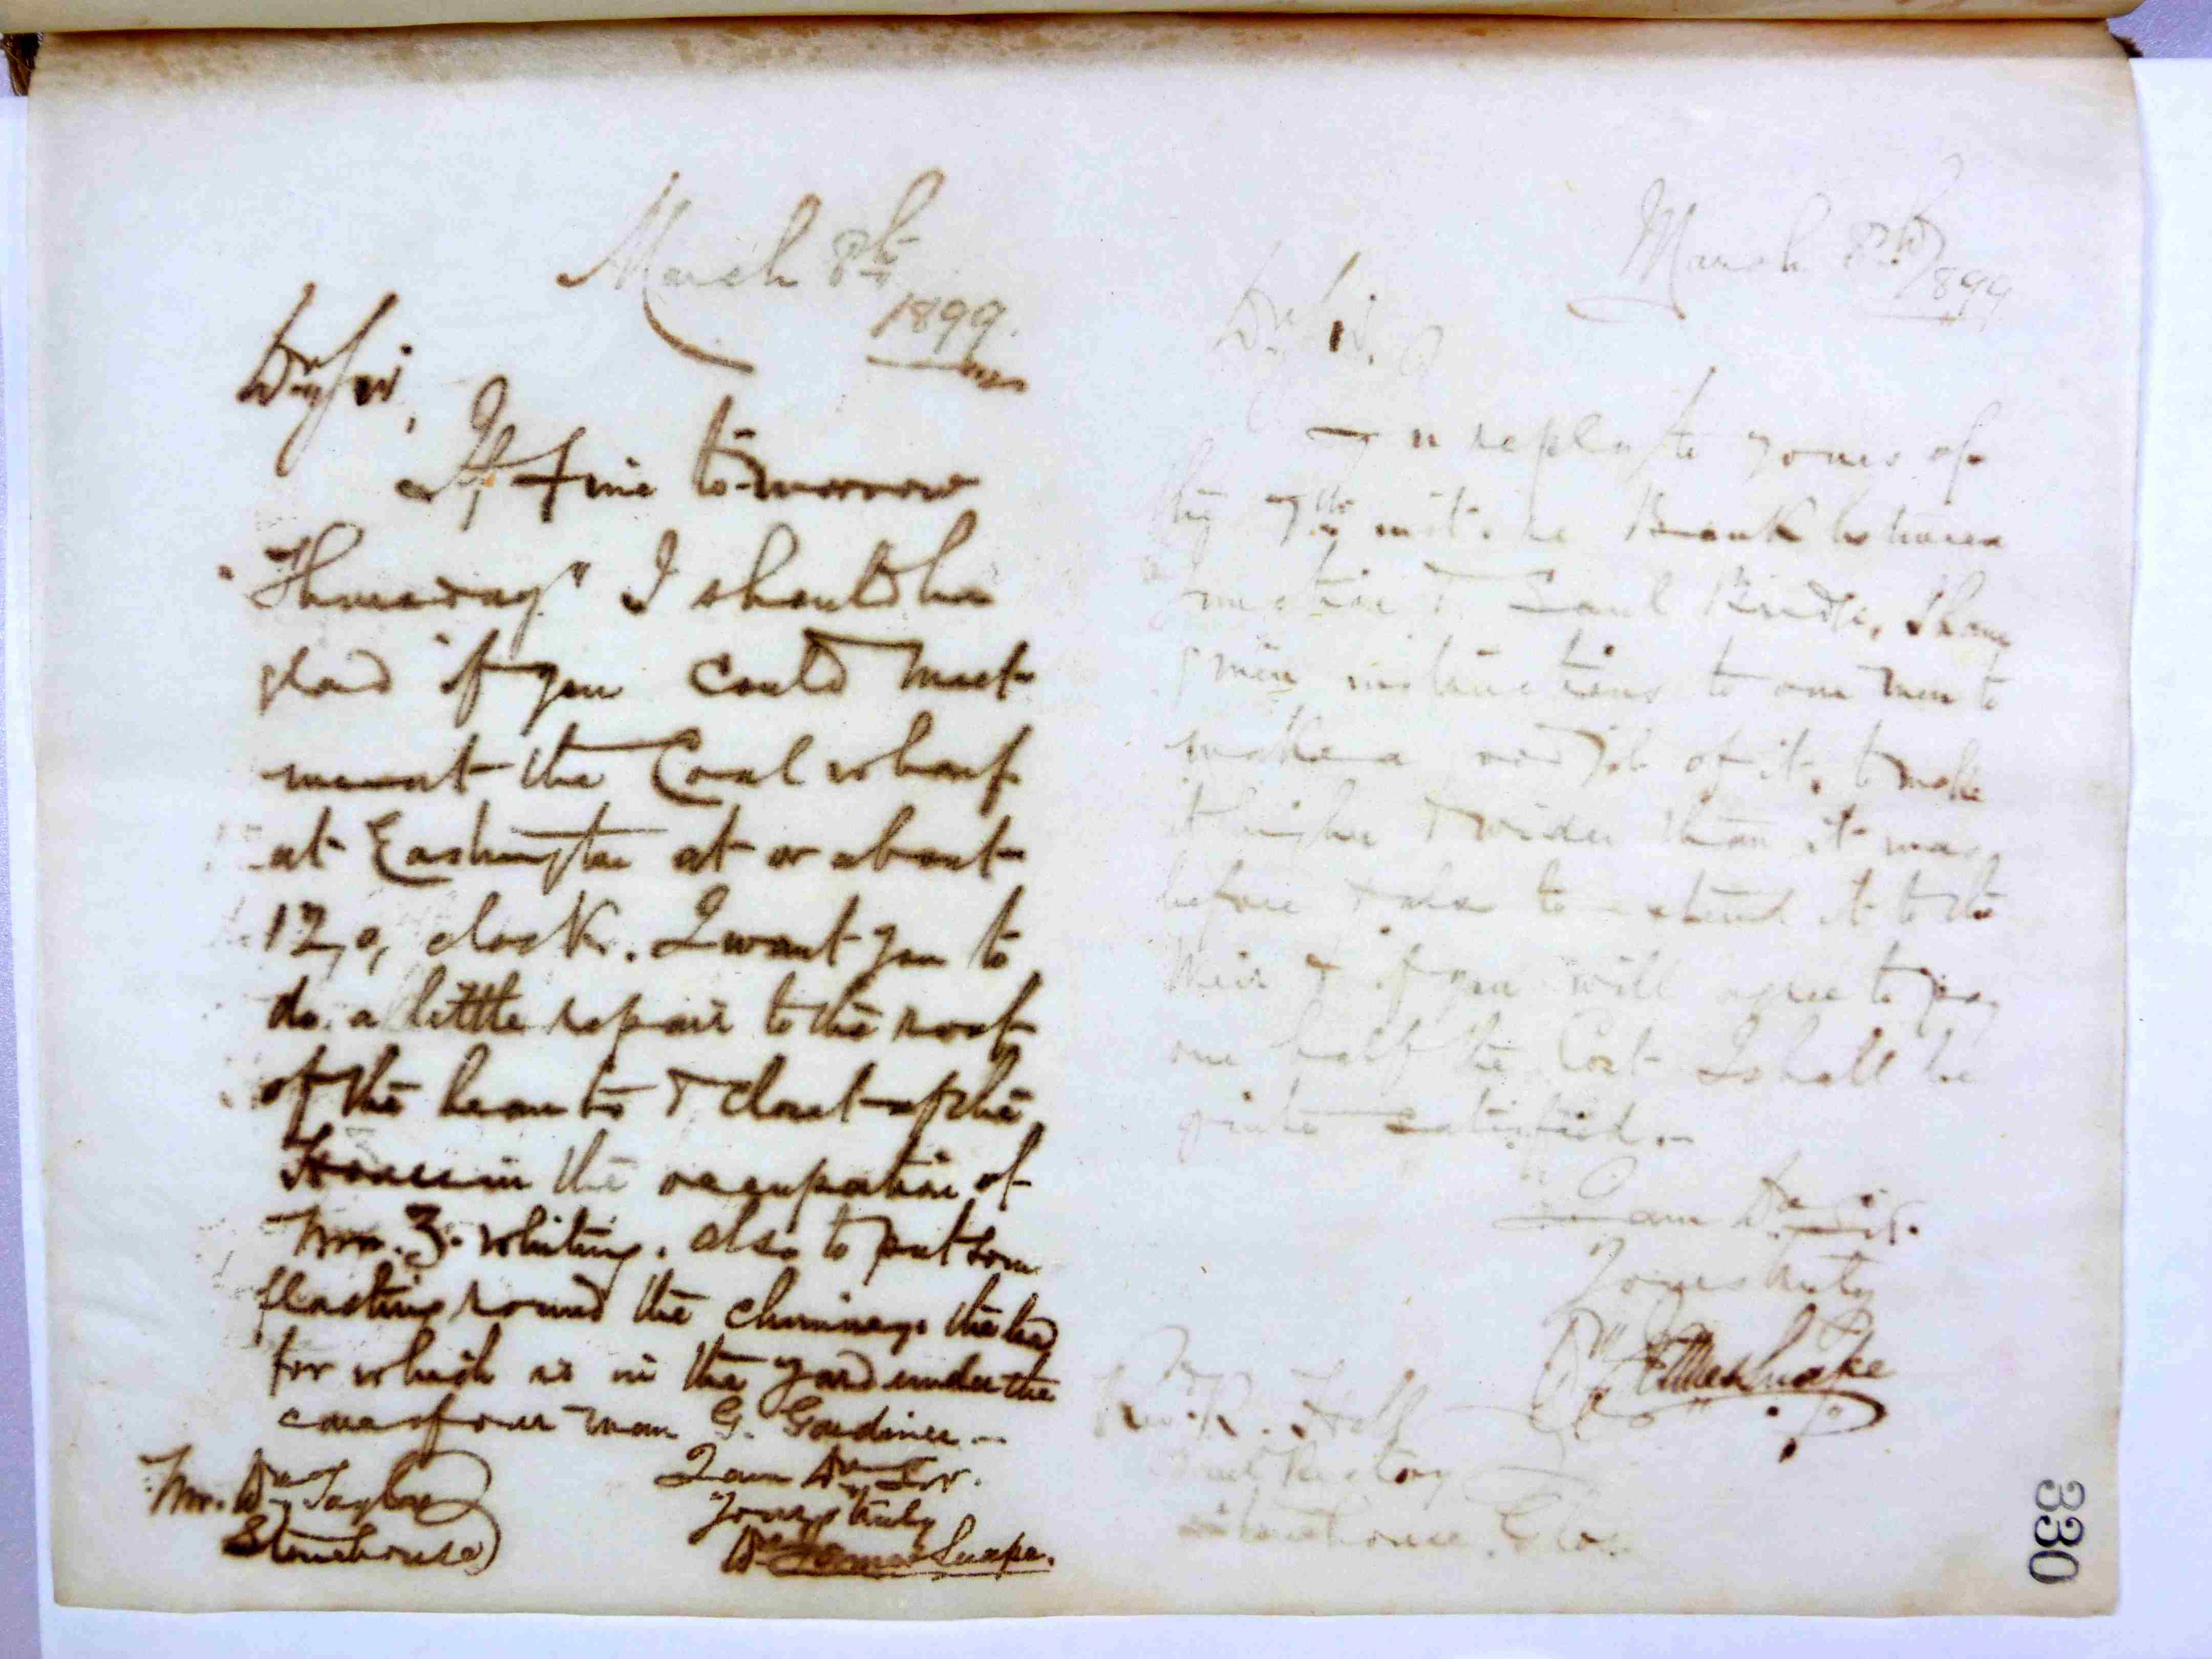 March 8th
1899.
Dr Sir,
If fine to-morrow
"Thursday" I should be
glad if you could meet
me at the Coal wharf
at Eastington at or about
12, o, clock. I want you to
do a little repair to the roof
of the & closet of the
House in the occupation of
Mr. Z. Whiting. also to put some
flashing round the chimney. the lead
for which is in the yard under the
care of our man G. Gardiner.
I am Dr Sir.
Yours truly
Snape.
Mr. Taylor
Stonehouse
March 8th 1899
Dr Sir.
In reply to yours of
the 7th inst. re Bank between
Junction & Saul Bridge, I have
given instructions to our men to
make a good job of it, to make
it higher & wider than it was
before & also to extend it to the
Weir & if you will agree to pay
one half the Cost I shall be
quite satisfied.
I am Dr Sir.
Yours truly
Snape
Revd. R. Hall
Saul Rectory
Stonehouse. Glos.
330